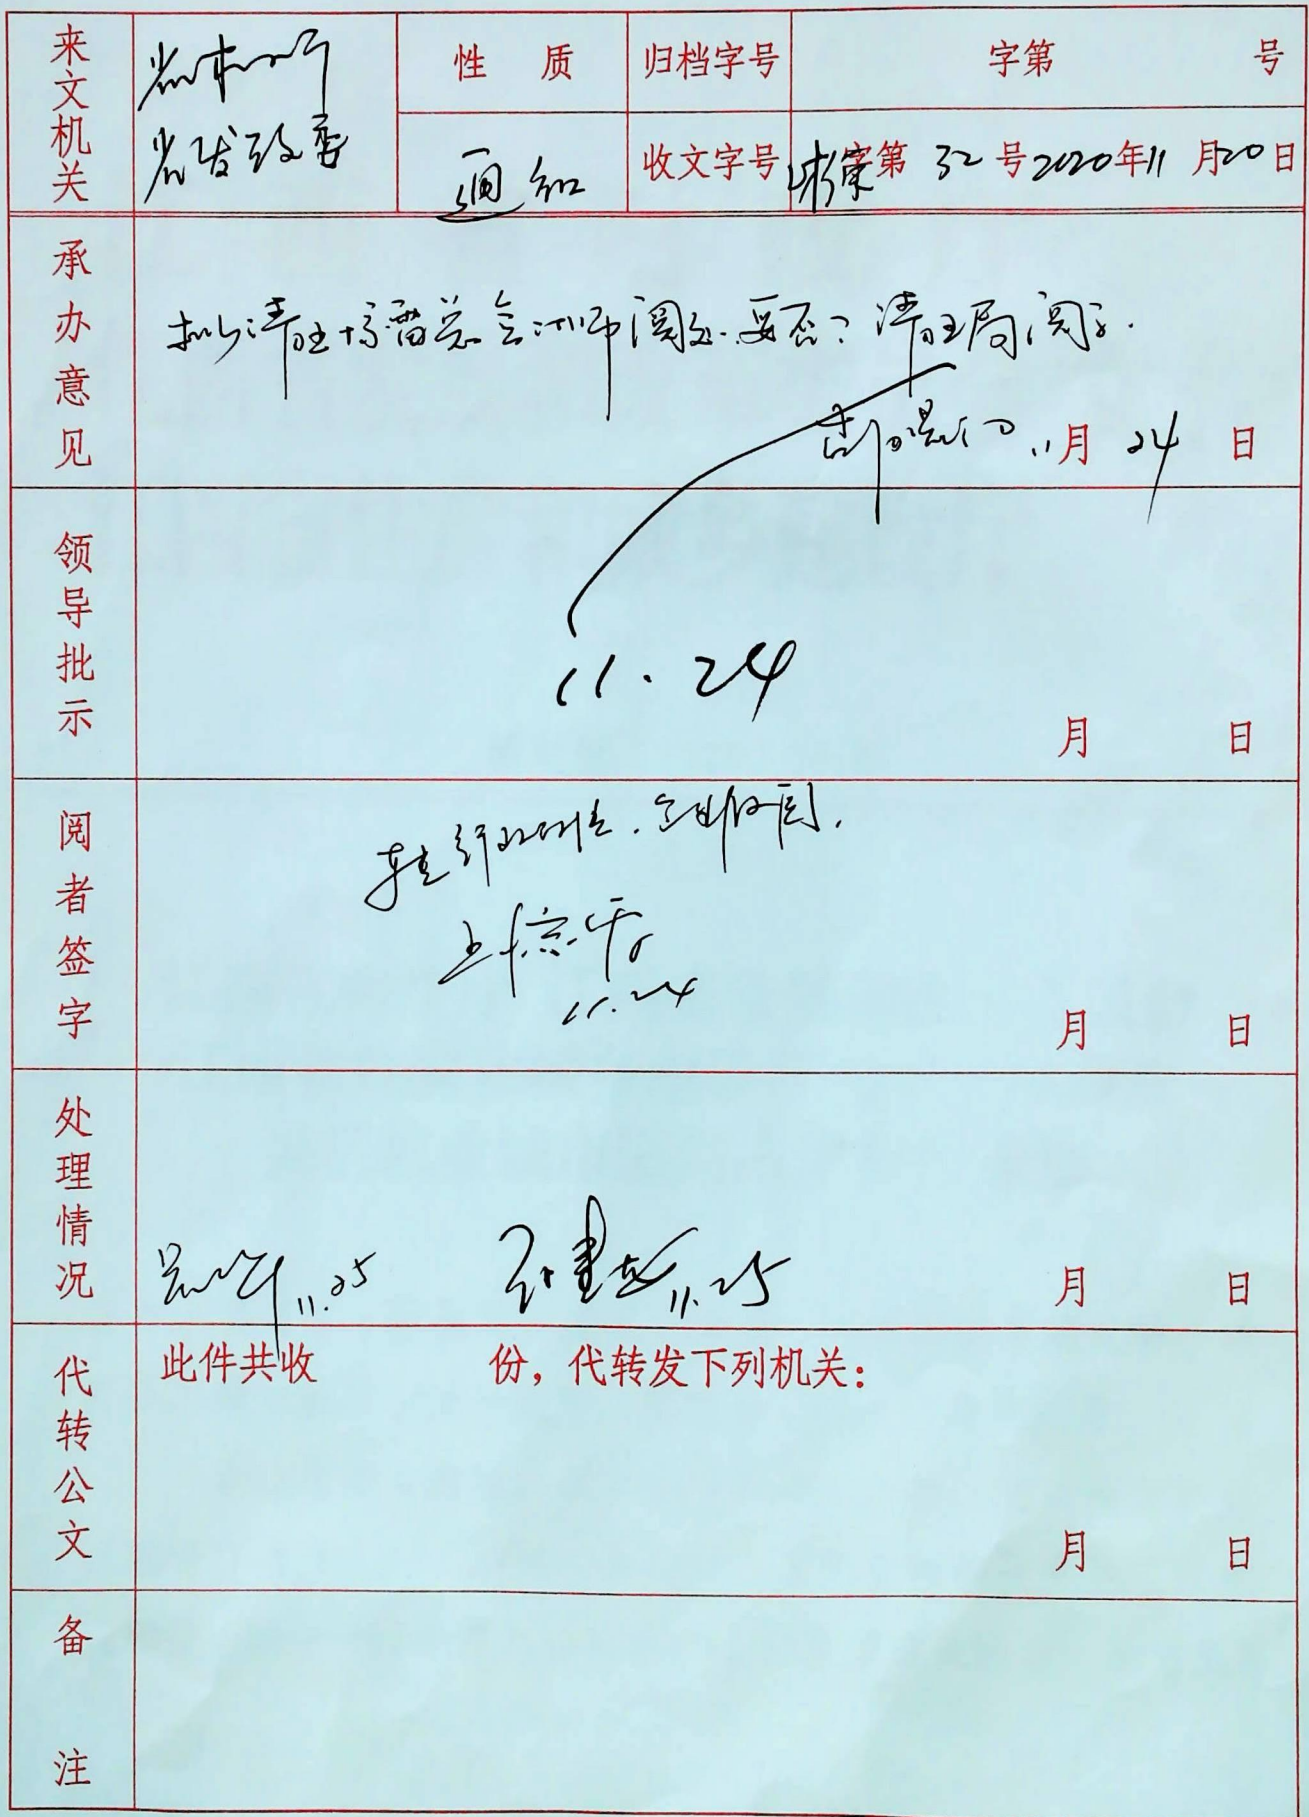 来文机关
省财政厅
省发改委
性 质
通知
归档字号
字第 号
收文字号
字第 32 号 2020年11月20日
承办意见
拟请王 总会计师阅处.妥否?请王局阅示.
11月24日
领导批示
11.24
月 日
阅者签字
11.24
月 日
处理情况
11.25
11.25
月 日
代转公文
此件共收 份，代转发下列机关：
月 日
备注